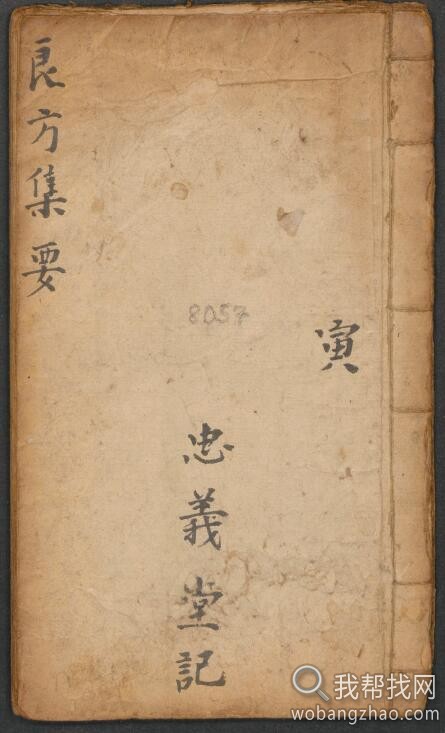 良方集要
8057
寅
忠義堂記
我帮找网
wobangzhao.com